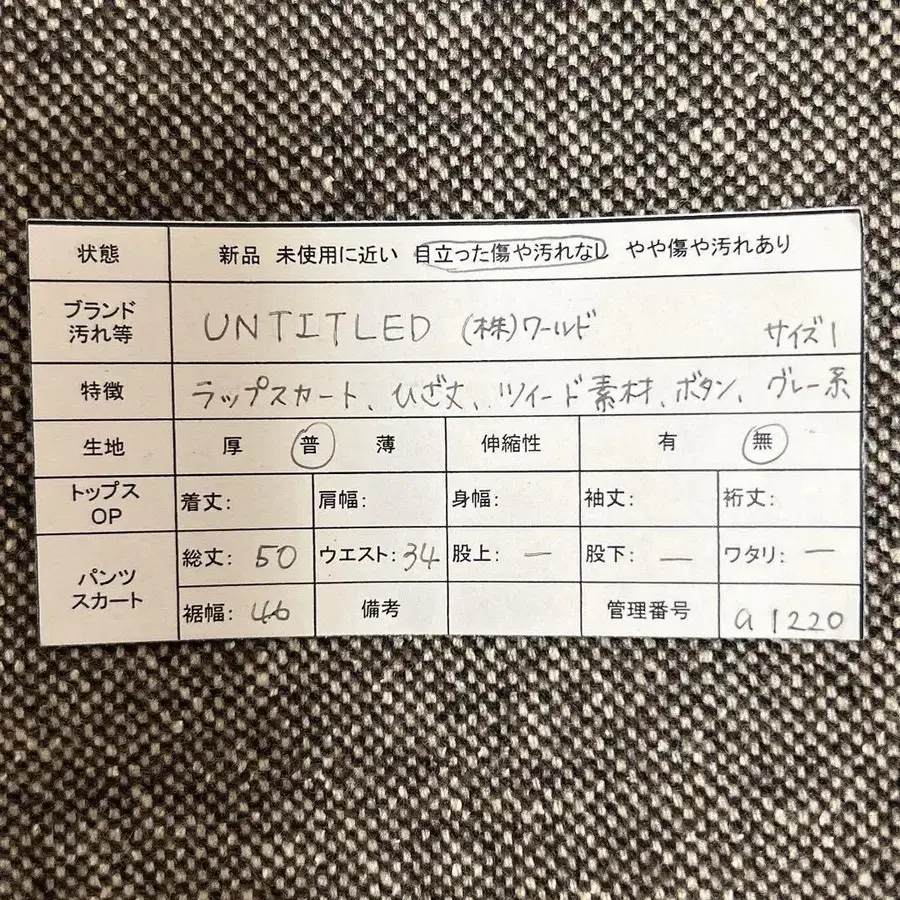 状態 新品 未使用に近い 目立った傷や汚れなし やや傷や汚れあり
ブランド
汚れ等 UNTITLED (株)ワールド サイズ1
特徴 ラップスカート、ひざ丈、ツイード素材、ボタン、グレー系
生地 厚 普 薄 伸縮性 有 無
トップス
OP 着丈: 肩幅: 身幅: 袖丈: 裄丈:
パンツ
スカート 総丈: 50 ウエスト: 34 股上: — 股下: — ワタリ: —
裾幅: 46 備考 管理番号 a1220